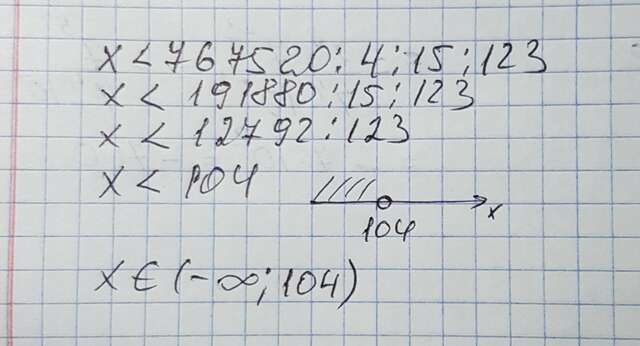 x < 767520 : 4 : 15 : 123
x < 191880 : 15 : 123
x < 12792 : 123
x < 104
104
x
x ∈ (-∞; 104)